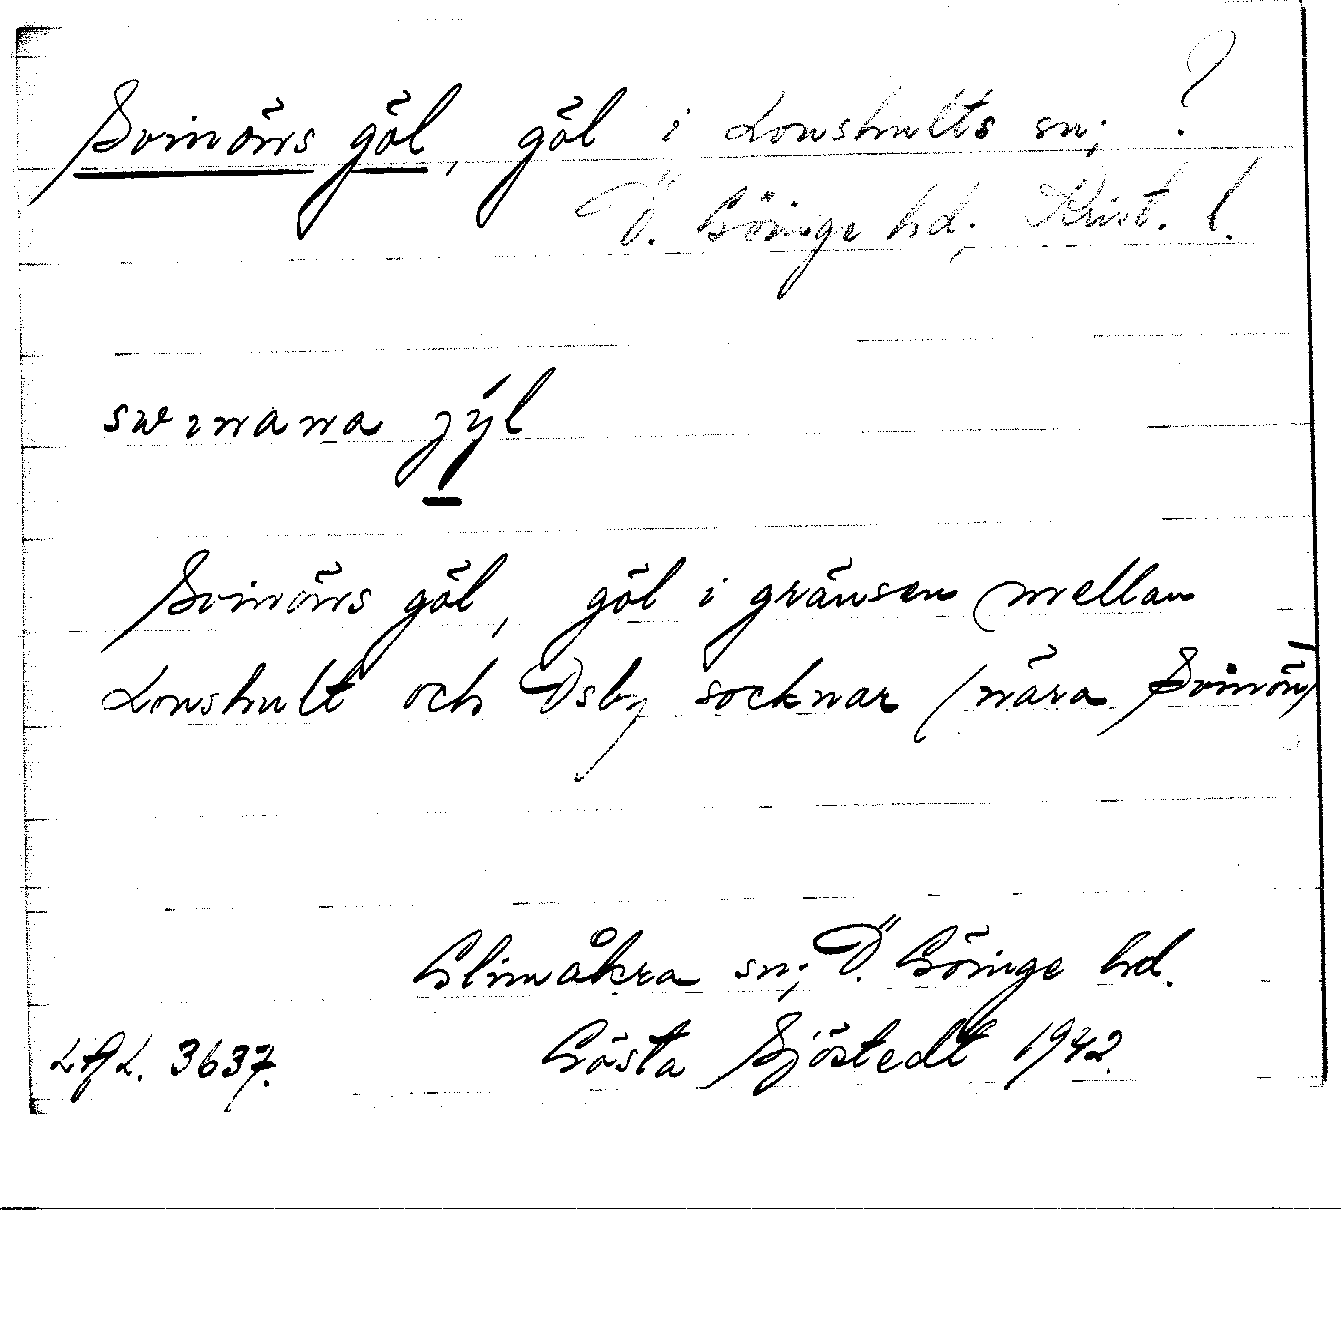 Svinöns göl, göl i Lönshults sn; ?
Ö. Göinge hd; Krist. l.
svinana jýl
Svinöns göl, göl i gränsen mellan
Lönshult och Osby socknar (nära Svinön)
Glimåkra sn; Ö. Göinge hd.
LAL. 3637. Gösta Sjöstedt 1942.